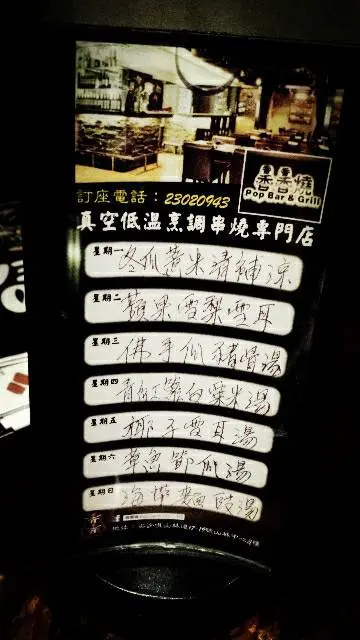 香香燒
Pop Bar & Grill
訂座電話：23020943
真空低溫烹調串燒專門店
星期一 冬瓜薏米清補涼
星期二 蘋果雪梨雪耳
星期三 佛手瓜豬骨湯
星期四 青紅蘿白粟米湯
星期五 椰子雪耳湯
星期六 章魚節瓜湯
星期日 海帶